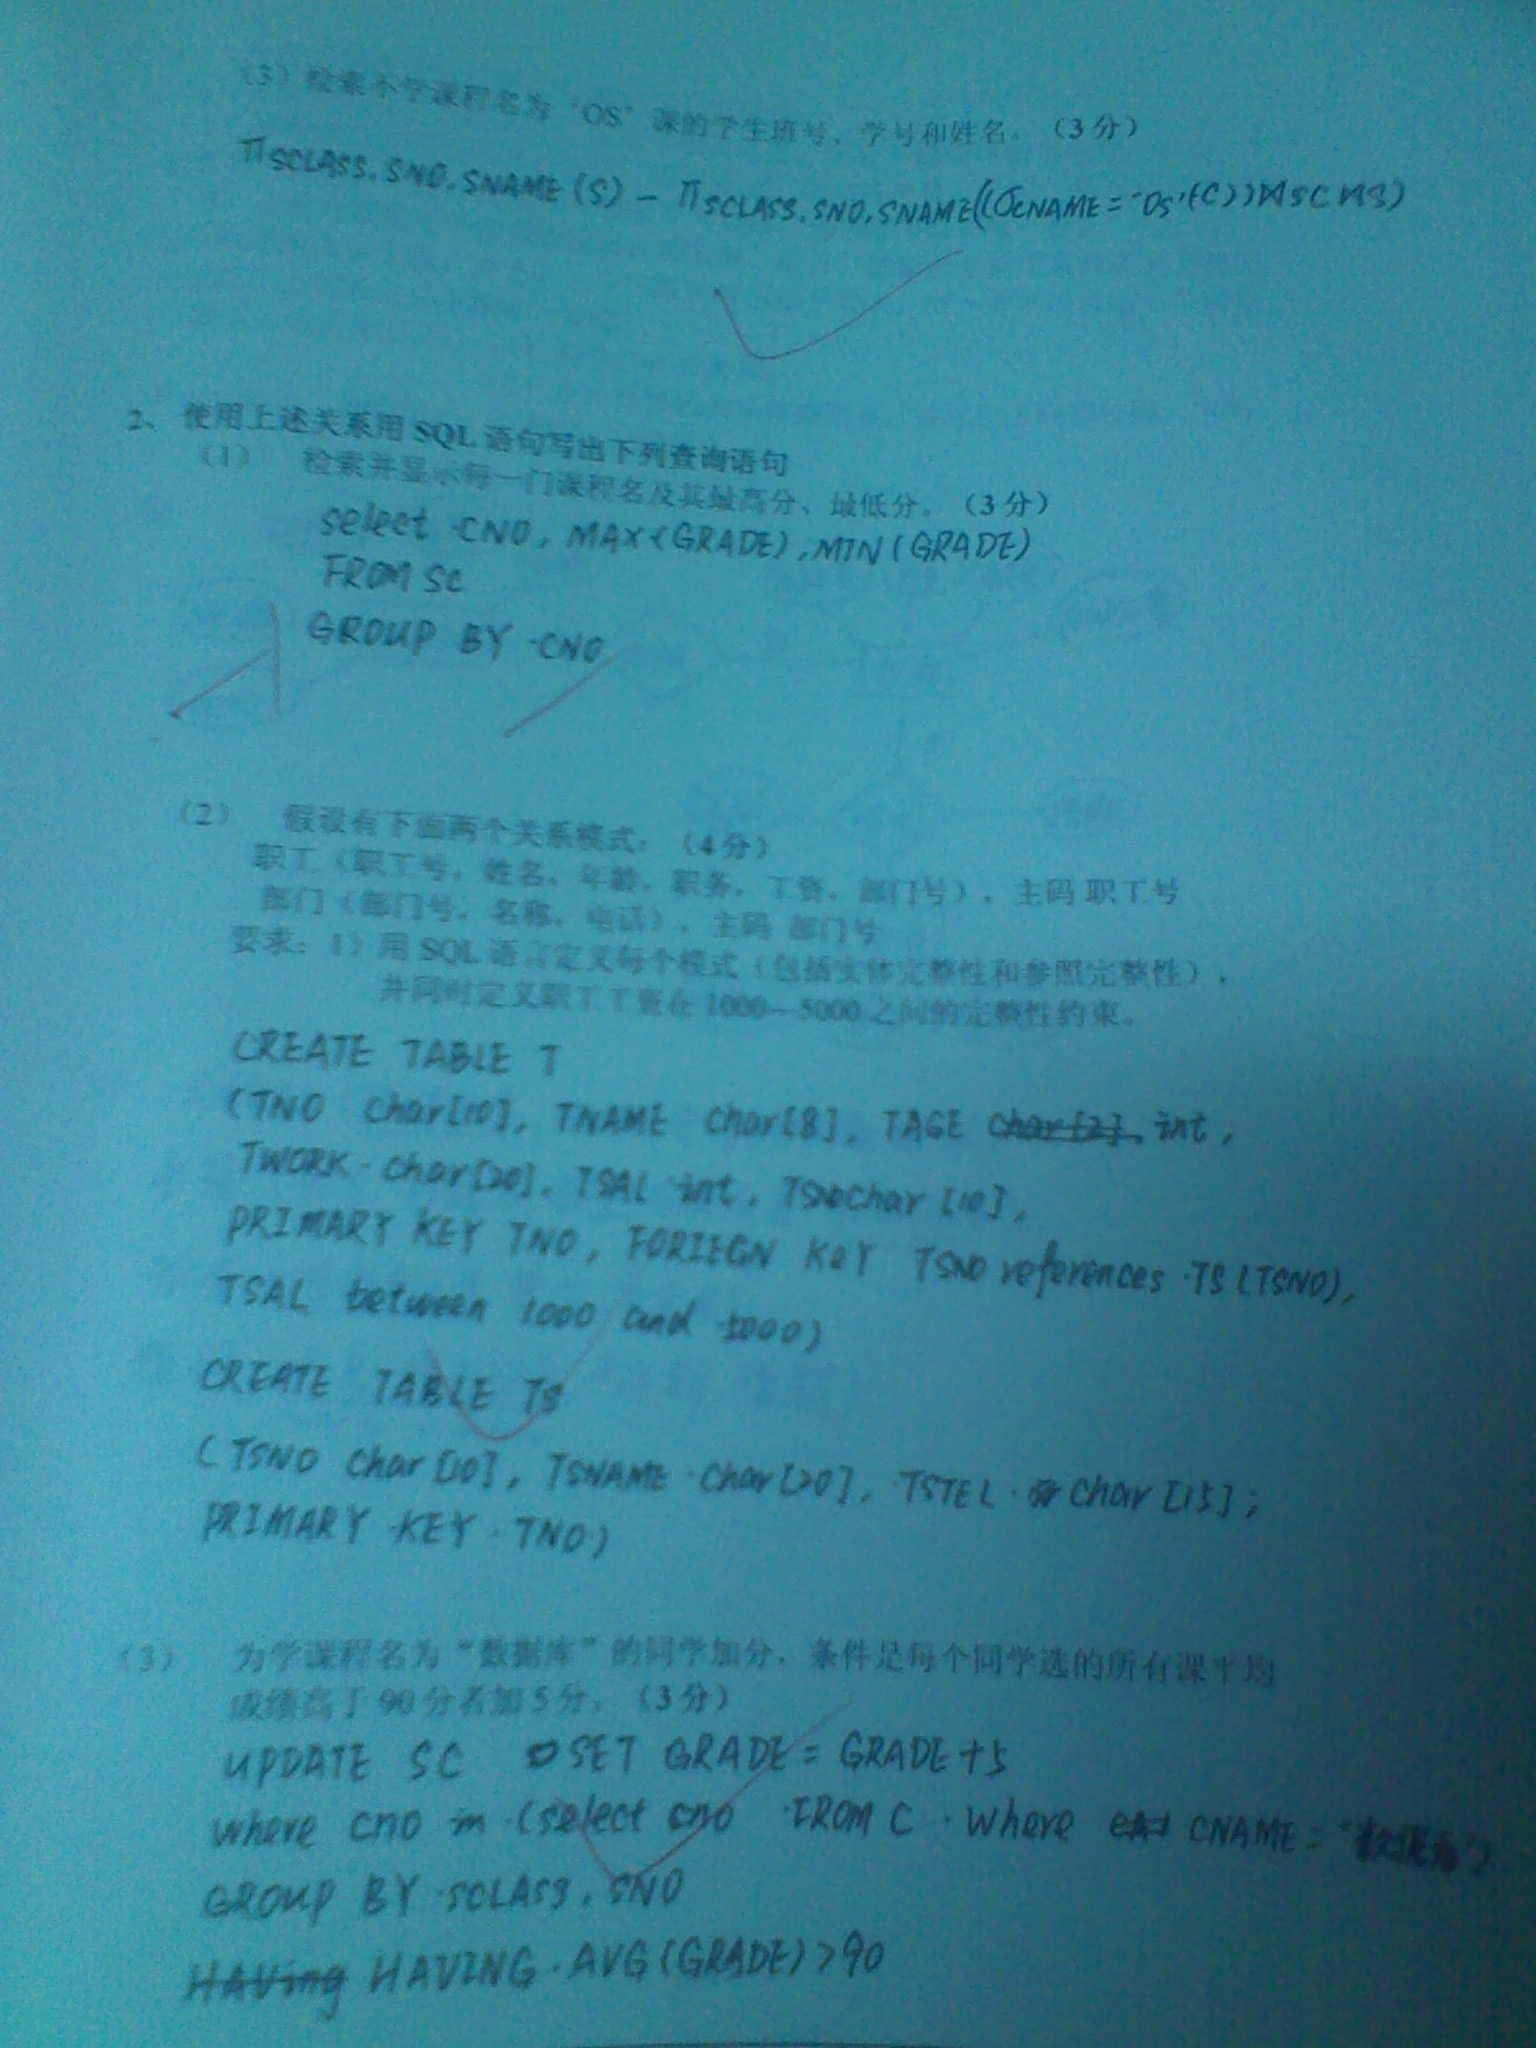 (3)检索不学课程名为“OS”课的学生班号、学号和姓名。(3分)
πSCLASS.SNO.SNAME(S)-πSCLASS.SNO.SNAME((σCNAME='OS'(C))⋈SC⋈S)
2、使用上述关系用SQL语句写出下列查询语句
(1) 检索并显示每一门课程名及其最高分、最低分。(3分)
select CNO, MAX(GRADE), MIN(GRADE)
FROM SC
GROUP BY CNO
(2) 假设有下面两个关系模式:(4分)
职工(职工号,姓名,年龄,职务,工资,部门号),主码 职工号
部门(部门号,名称,电话),主码 部门号
要求:1)用SQL语言定义每个模式(包括实体完整性和参照完整性),
并同时定义职工工资在1000—5000之间的完整性约束。
CREATE TABLE T
(TNO char[10], TNAME char[8], TAGE char[2], int,
TWORK char[20], TSAL int, TSNO char[10],
PRIMARY KEY TNO, FORIEGN KEY TSNO references TS(TSNO),
TSAL between 1000 and 5000)
CREATE TABLE TS
(TSNO char[10], TSNAME char[20], TSTEL char[15];
PRIMARY KEY TNO)
(3) 为学课程名为“数据库”的同学加分,条件是每个同学选的所有课平均
成绩高于90分者加5分。(3分)
UPDATE SC SET GRADE = GRADE+5
where cno in (select cno FROM C where CNAME='数据库')
GROUP BY SCLASS, SNO
HAVing HAVING AVG(GRADE)>90